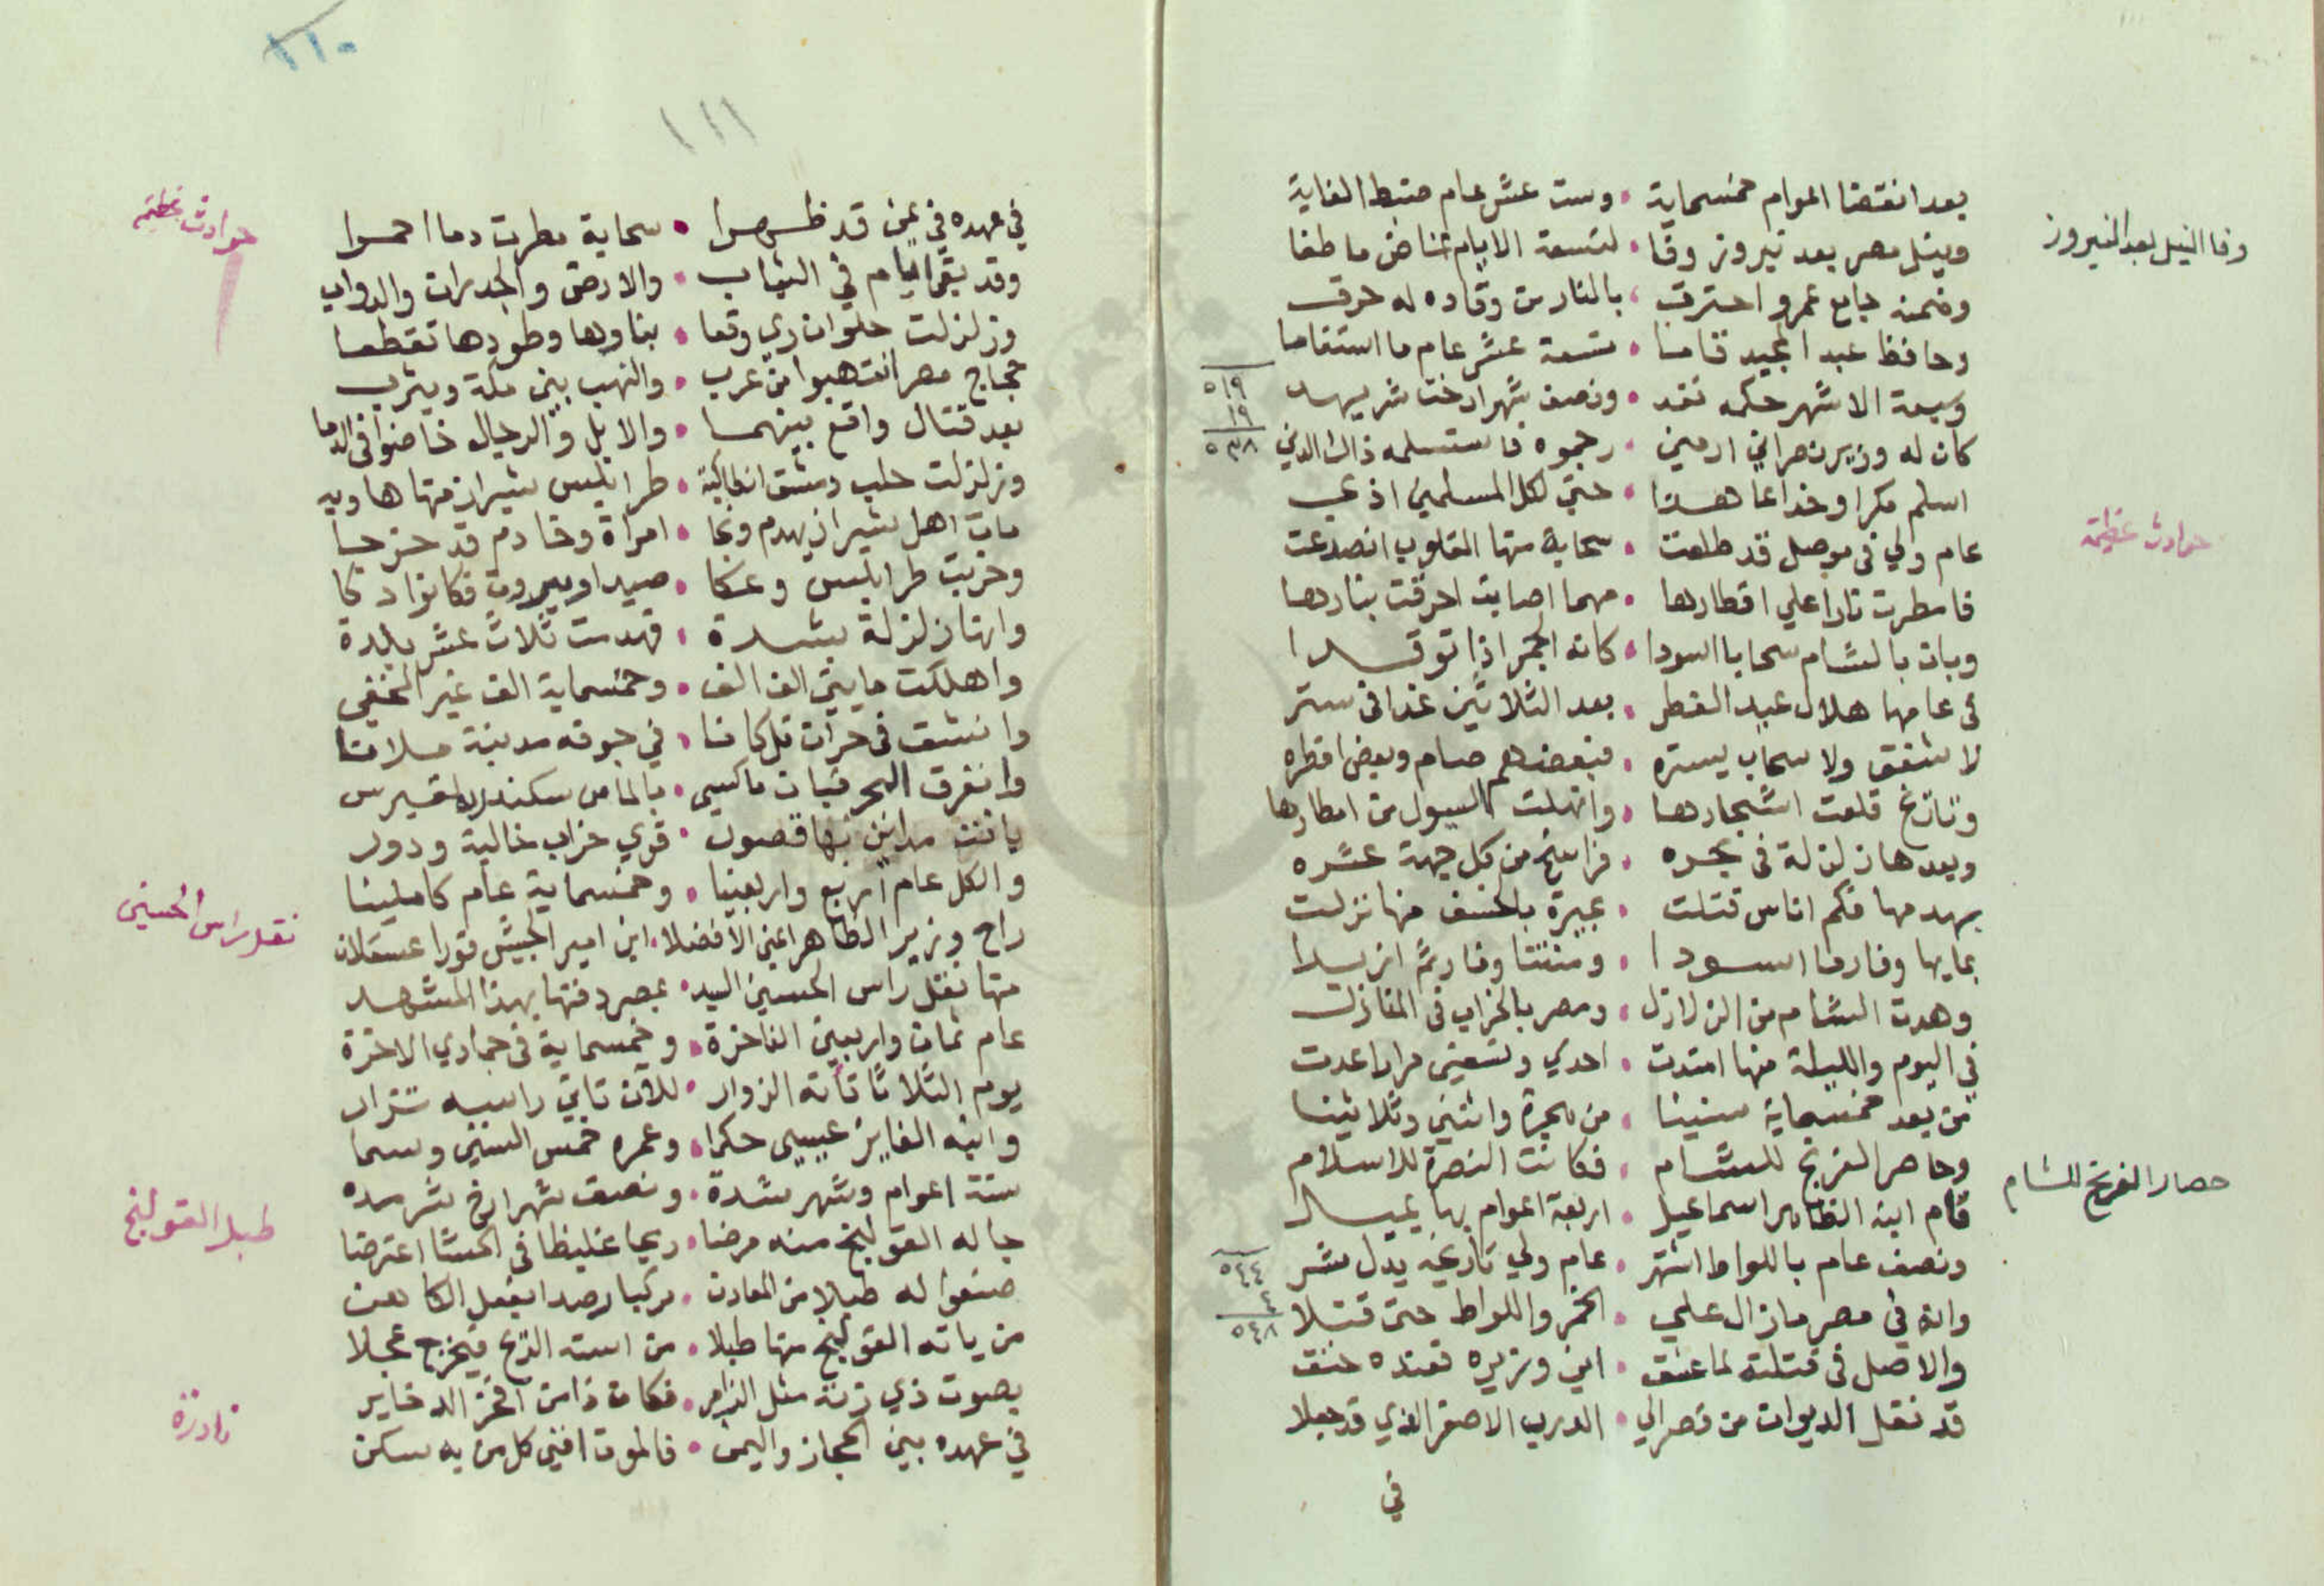 بعد انقضا اعوام خمسماية • وست عشر عام ضبط الغاية
وفا النيل بعد النيروز
ونيل مصر بعد نيروز وفا • لتسعة الايام خاض ما طفا
وضمنه جامع عمرو احترق • بالنار من وقاده له حرق
وحافظ عبد المجيد قامنا • تسعة عشر عام ما استقاما
وسبعة الاشهر حكمه نفد • ونصف شهر ارخت شر يهد
٥١٩
١٩
٥٣٨
كان له وزير نصراني ارمني • رجموه فاستسلمه ذاك الدني
اسلم مكرا وخداعا هذا • حتي لكل المسلمين اذي
حوادث عظيمة
عام ولي في موصل قد طلعت • سحابة منها القلوب انصدعت
فامطرت نارا علي اقطارها • مهما اصابت احرقت بنارها
وبان بالشام سحابا اسودا • كانه الجمر اذا توقدا
في عامها هلال عيد الفطر • بعد الثلاثين غدا في ستر
لا شفق ولا سحاب يستره • فبعضهم صام وبعض افطره
قلعت اشجارها • وانهلت السيول من امطارها
وبعدها زلزلة في بحره • فراسخ من كل جهة عشره
بهدمها فكم اناس قتلت • بحيرة بالخسف منها نزلت
بمايها وفار ما اسودا • ومنتنا وفار ثم ازبدا
وهدت الشام من الزلازل • ومصر بالخراب في المنازل
في اليوم والليلة منها امتدت • احدي وتسعين مرارا عدت
من بعد خمسماية سنينا • من هجرة واثنين وثلاثينا
وحاصر الفرنج للشام • فكانت النصرة للاسلام
حصار الفرنج للشام
قام ابنه الظاهر اسماعيل • اربعة اعوام بها يميل
ونصف عام باللواط اشتهر • عام ولي تاريخه يدل شر
٥٤٤
٤
٥٤٨
وانه في مصر ما زال علي • الخمر واللواط حتي قتلا
والاصل في قتلته لما عشق • ابن وزيره فعنده خنق
قد نقل الديوان من قصر الي • الدرب الاصفر الذي قد جعلا
في
١١٠
١١١
في عهده في يمن قد ظهرا • سحابة مطرت دما احمرا
حوادث عظيمة
وقد بقي ايام في الثياب • والارض والجدران والدواب
وزلزلت حلوان ري وقعا • بناوها وطودها تقطعا
حجاج مصر انتهبوا من عرب • والنهب بين مكة ويثرب
بعد قتال واقع بينهما • والابل والرجال خاضوا في الدما
وزلزلت حلب دمشق انطاكية • طرابلس شيراز منها هاويه
مات اهل شيراز بهدم ونجا • امراة وخادم قد خرجا
وخربت طرابلس وعكا • صيدا وبيروت فكانوا دكا
وانها زلزلة بشدة • فهدمت ثلاث عشر بلدة
واهلكت مايتي الف الف • وخمسماية الف غير المختفي
وانشق في حران تل كانا • في جوفه مدينة
وانفرق البحر فبان ما كسي • بالماس سكندر لقبرس
بانت مداين بها قصور • قري خراب خالية ودور
والكل عام اربع واربعينا • وخمسماية عام كاملينا
راح وزير الظاهر اعني الافضلا • ابن امير الجيش فورا عسقلان
نقل راس الحسين
منها نقل راس الحسين السيد • بمصر دفنها بهذا المشهد
عام ثمان واربعين الفاخرة • وخمسماية في جمادي الاخرة
يوم الثلاثا تأته الزوار • للان تاتي راسه تزار
وابنه الفايز عيسي حكما • وعمره خمس السنين وسما
ستة اعوام وشهر بشدة • ونصف شهر ارخ
طبل القولنج
جا له القولنج منه مرضا • ريحا غليظا في الحشا اعترضا
صنعوا له طبلا من المعادن • مركبا رصدا بفعل الكاهن
من ياته القولنج منها طبلا • من استه الريح فيخرج عجلا
بصوت ذي رنة مثل الزامر • فكان ذا من افخر الدخاير
نادرة
في عهده بين الحجاز واليمن • فالموت افني كل من به سكن